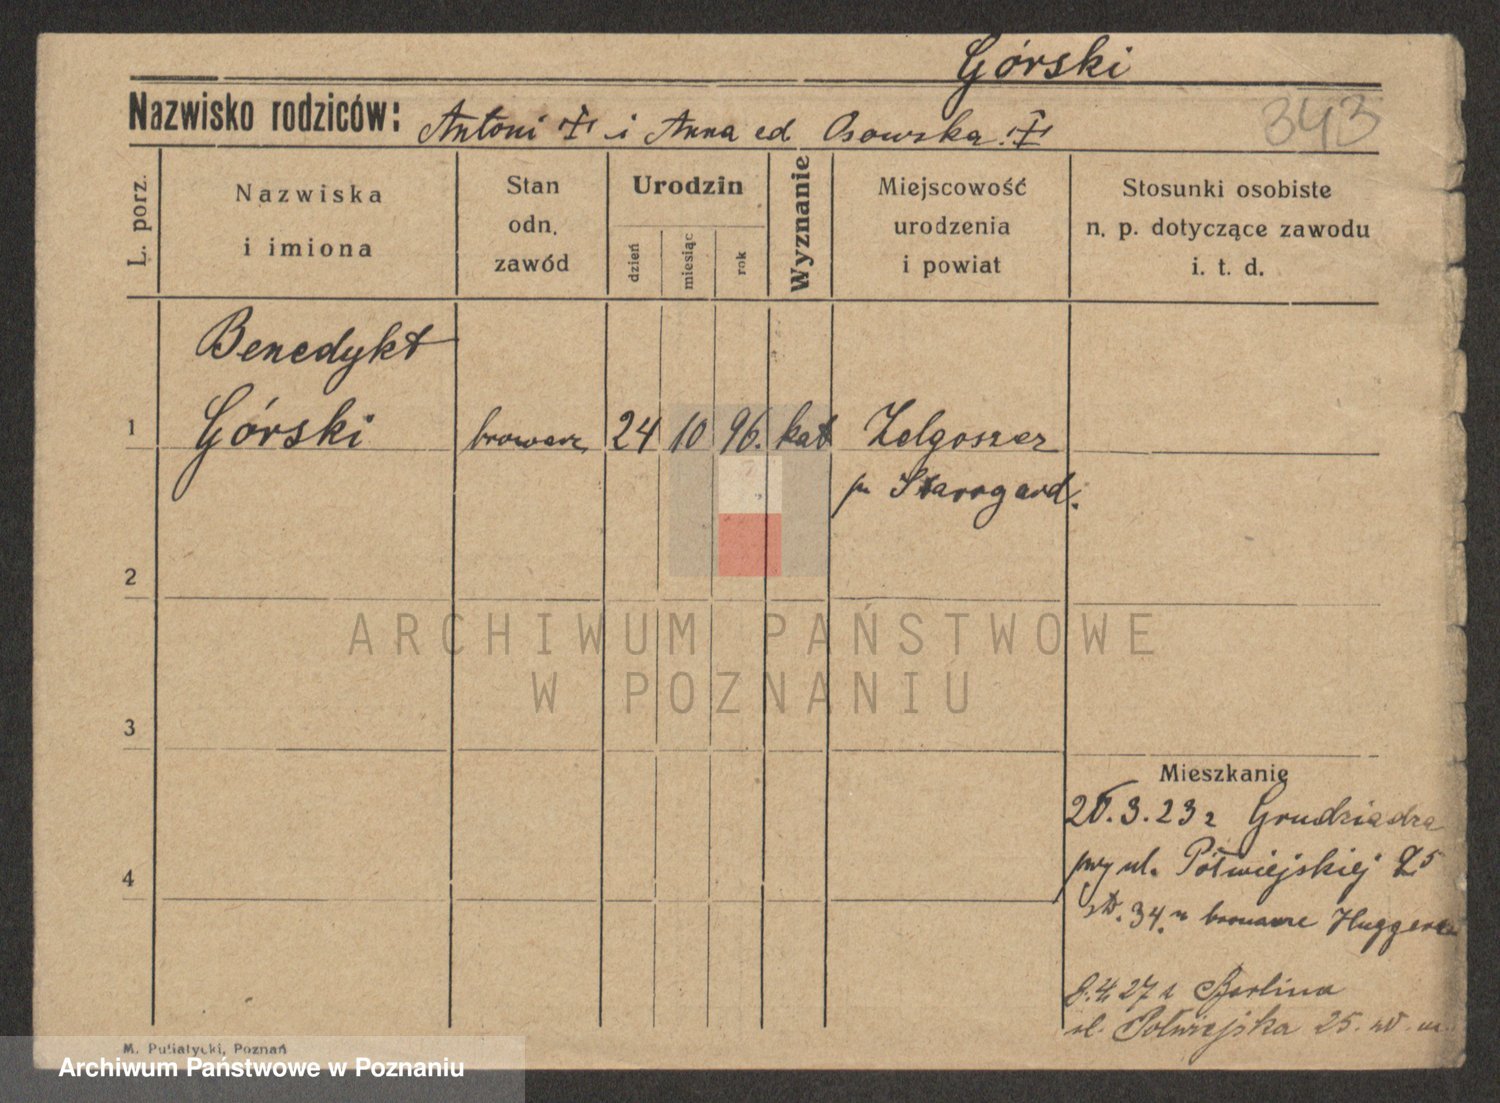 Górski
343
Nazwisko rodziców: Antoni i Anna Osowska
L. porz.
Nazwiska
i imiona
Stan
odn.
zawód
Urodzin
dzień
miesiąc
rok
Wyznanie
Miejscowość
urodzenia
i powiat
Stosunki osobiste
n. p. dotyczące zawodu
i. t. d.
Benedykt
1 Górski browarz 24 10 96. kat Zelgoszcz
Starogard.
2
3
4
Mieszkanie
3.23 z Grudziądza
przy ul. Półwiejskiej 25
34. w browarze
4 27 z Berlina
ul. Półwiejska 25.
ARCHIWUM PAŃSTWOWE
W POZNANIU
M. Putiatycki, Poznań
Archiwum Państwowe w Poznaniu